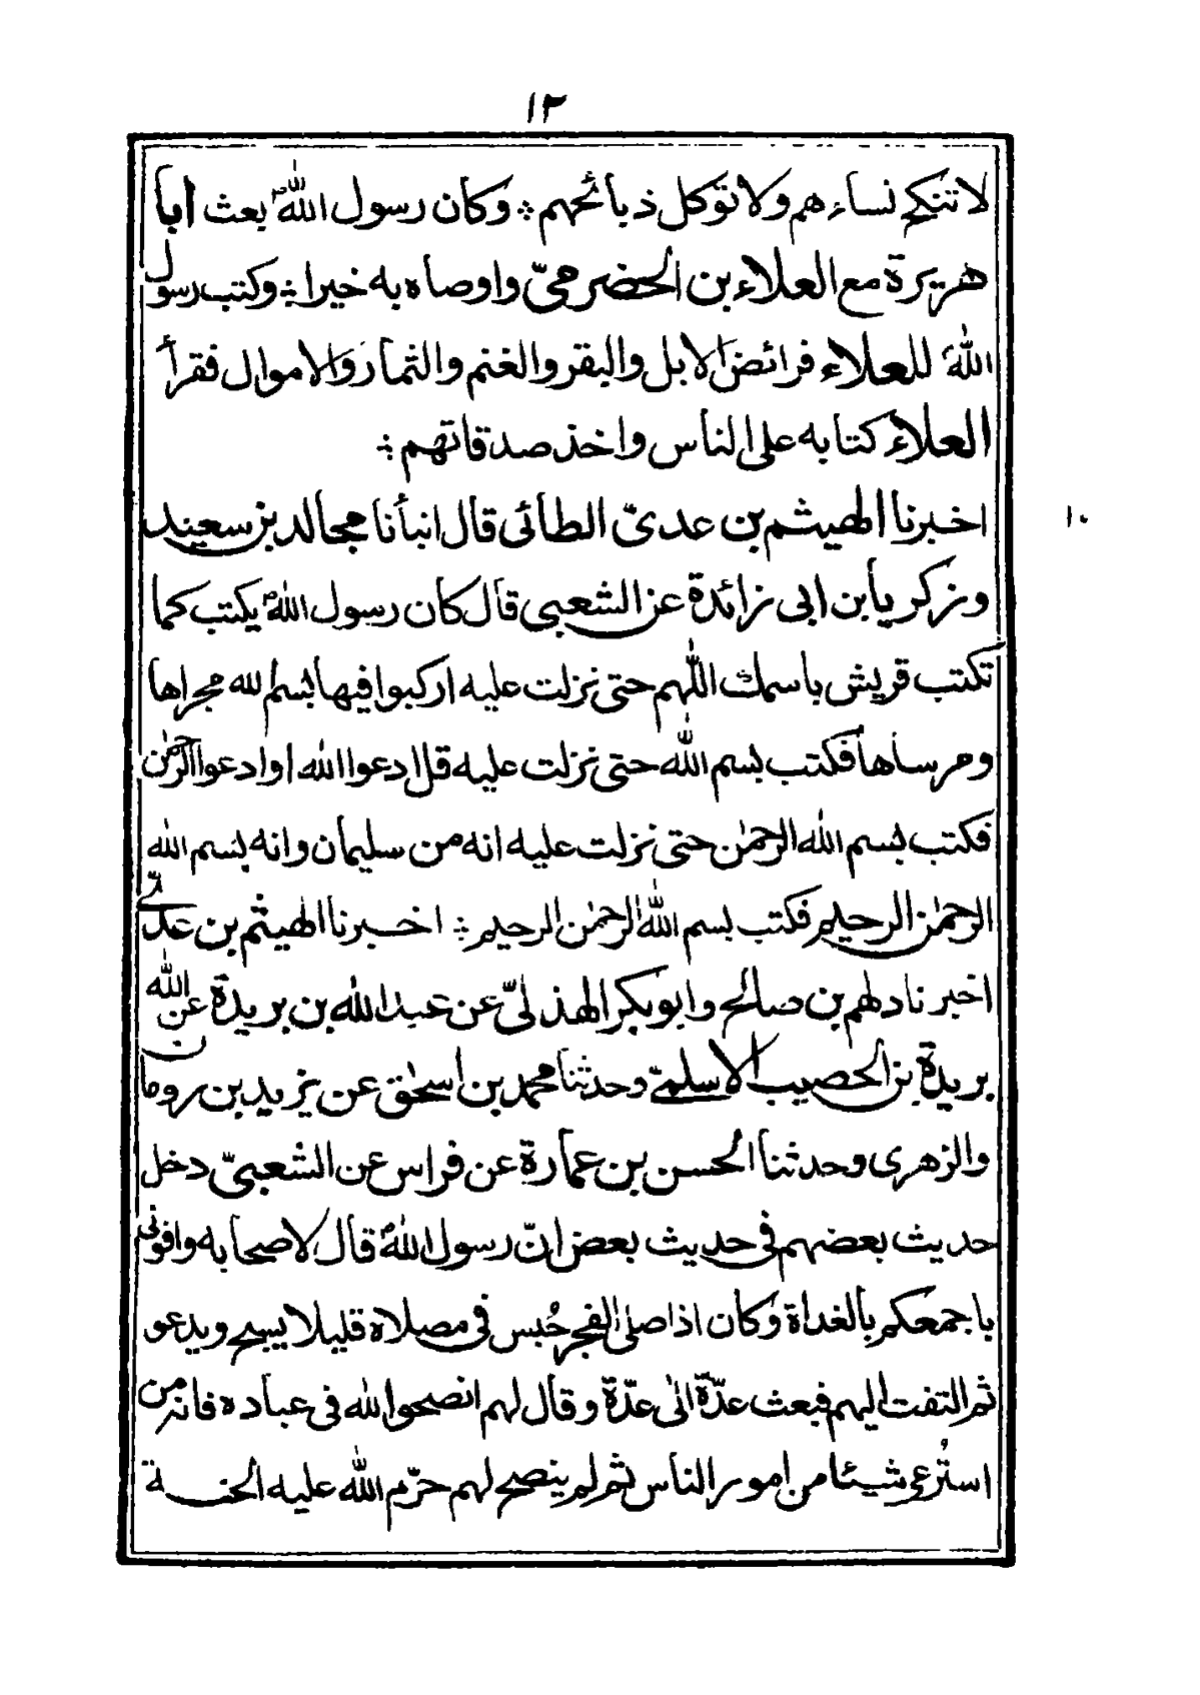 ١٣
لا تنكح نساءهم ولا تؤكل ذبائحهم ؞ وكان رسول اللهؐ بعث أبا
هريرة مع العلاء بن الحضرمىّ واوصاه به خيرا ؞ وكتب رسول
اللهؐ للعلاء فرائض الابل والبقر والغنم والثمار والاموال فقرأ
العلاء كتابه على الناس واخذ صدقاتهم ؞
١٠
اخبرنا الهيثم بن عدىّ الطائى قال انبأنا مجالد بن سعيد
وزكريا بن ابى زائدة عن الشعبى قال كان رسول اللهؐ يكتب كما
تكتب قريش باسمك اللّٰهم حتى نزلت عليه اركبوا فيها بسم لله مجراها
ومرساها فكتب بسم اللّٰه حتى نزلت عليه قل ادعوا الله او ادعوا الرحمٰن
فكتب بسم الله الرحمٰن حتى نزلت عليه انه من سليمان وانه بسم الله
الرحمٰن الرحيم فكتب بسم اللّٰه الرحمٰن الرحيم ؞ اخبرنا الهيثم بن عدىّ
اخبرنا دلهم بن صالح وابو بكر الهذلىّ عن عبد الله بن بريدة عن اللّٰه
بريدة بن الحصيب الاسلمىّ وحدثنا محمد بن اسحٰق عن يزيد بن رومان
والزهرى وحدثنا الحسن بن عمارة عن فراس عن الشعبىّ دخل
حديث بعضهم فى حديث بعض انّ رسول اللهؐ قال لاصحابه وافونى
باجمعكم بالغداة وكان اذا صلى الفجر حُبس فى مصلاه قليلا يسبح ويدعو
ثم التفت اليهم فبعث عدّة الىٰ عدّة وقال لهم انصحوا لله فى عباده فانه من
استُرعى شيئا من امور الناس ثم لم ينصح لهم حرّم اللّٰه عليه الجنـــة